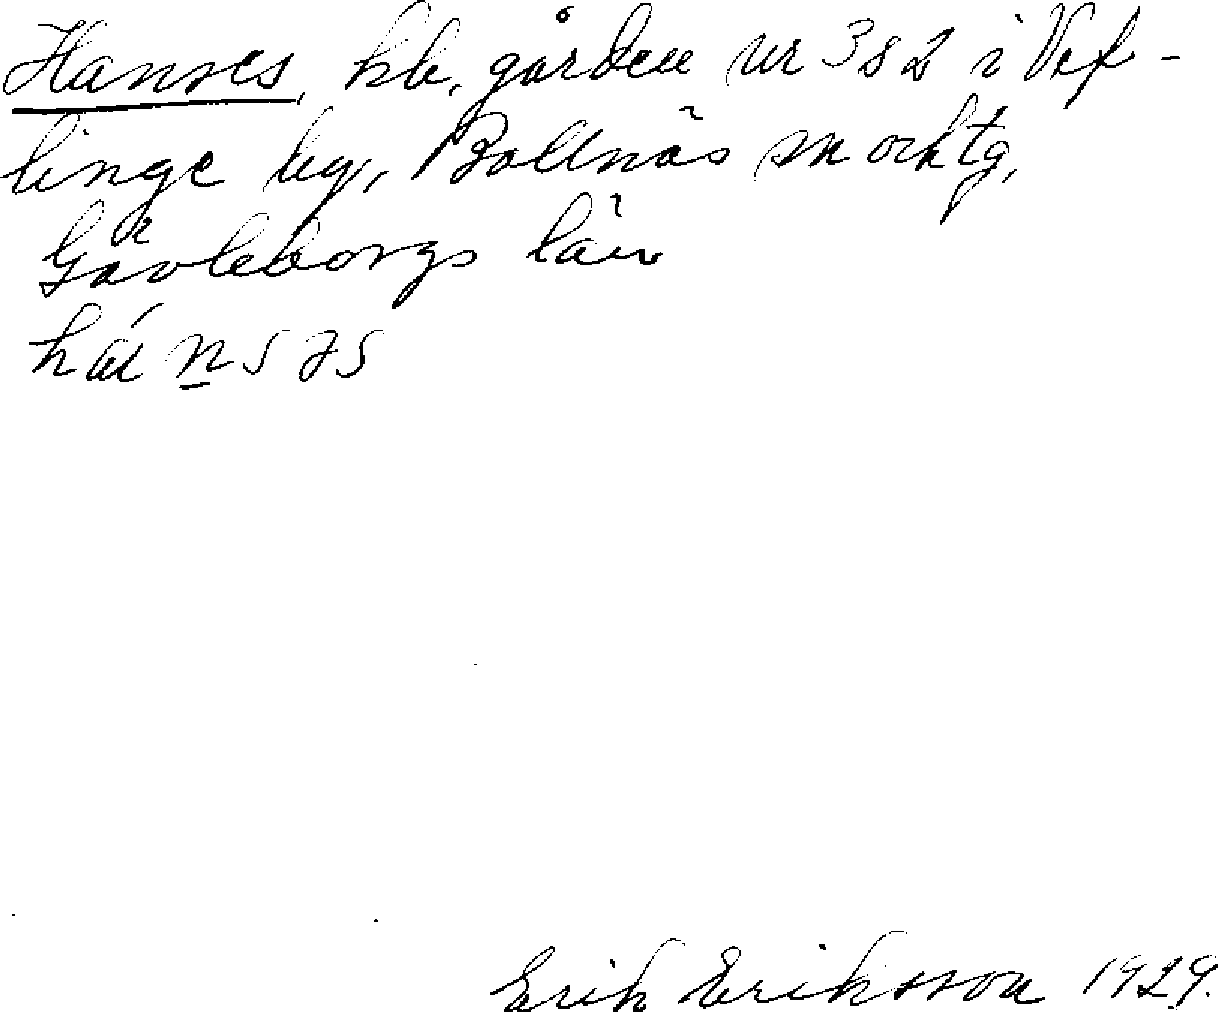 Hannes, hb. gården nr 3 s 2 i Vef-
linge by, Bollnäs sn och tg,
Gävleborgs län
Erik Eriksson 1929.